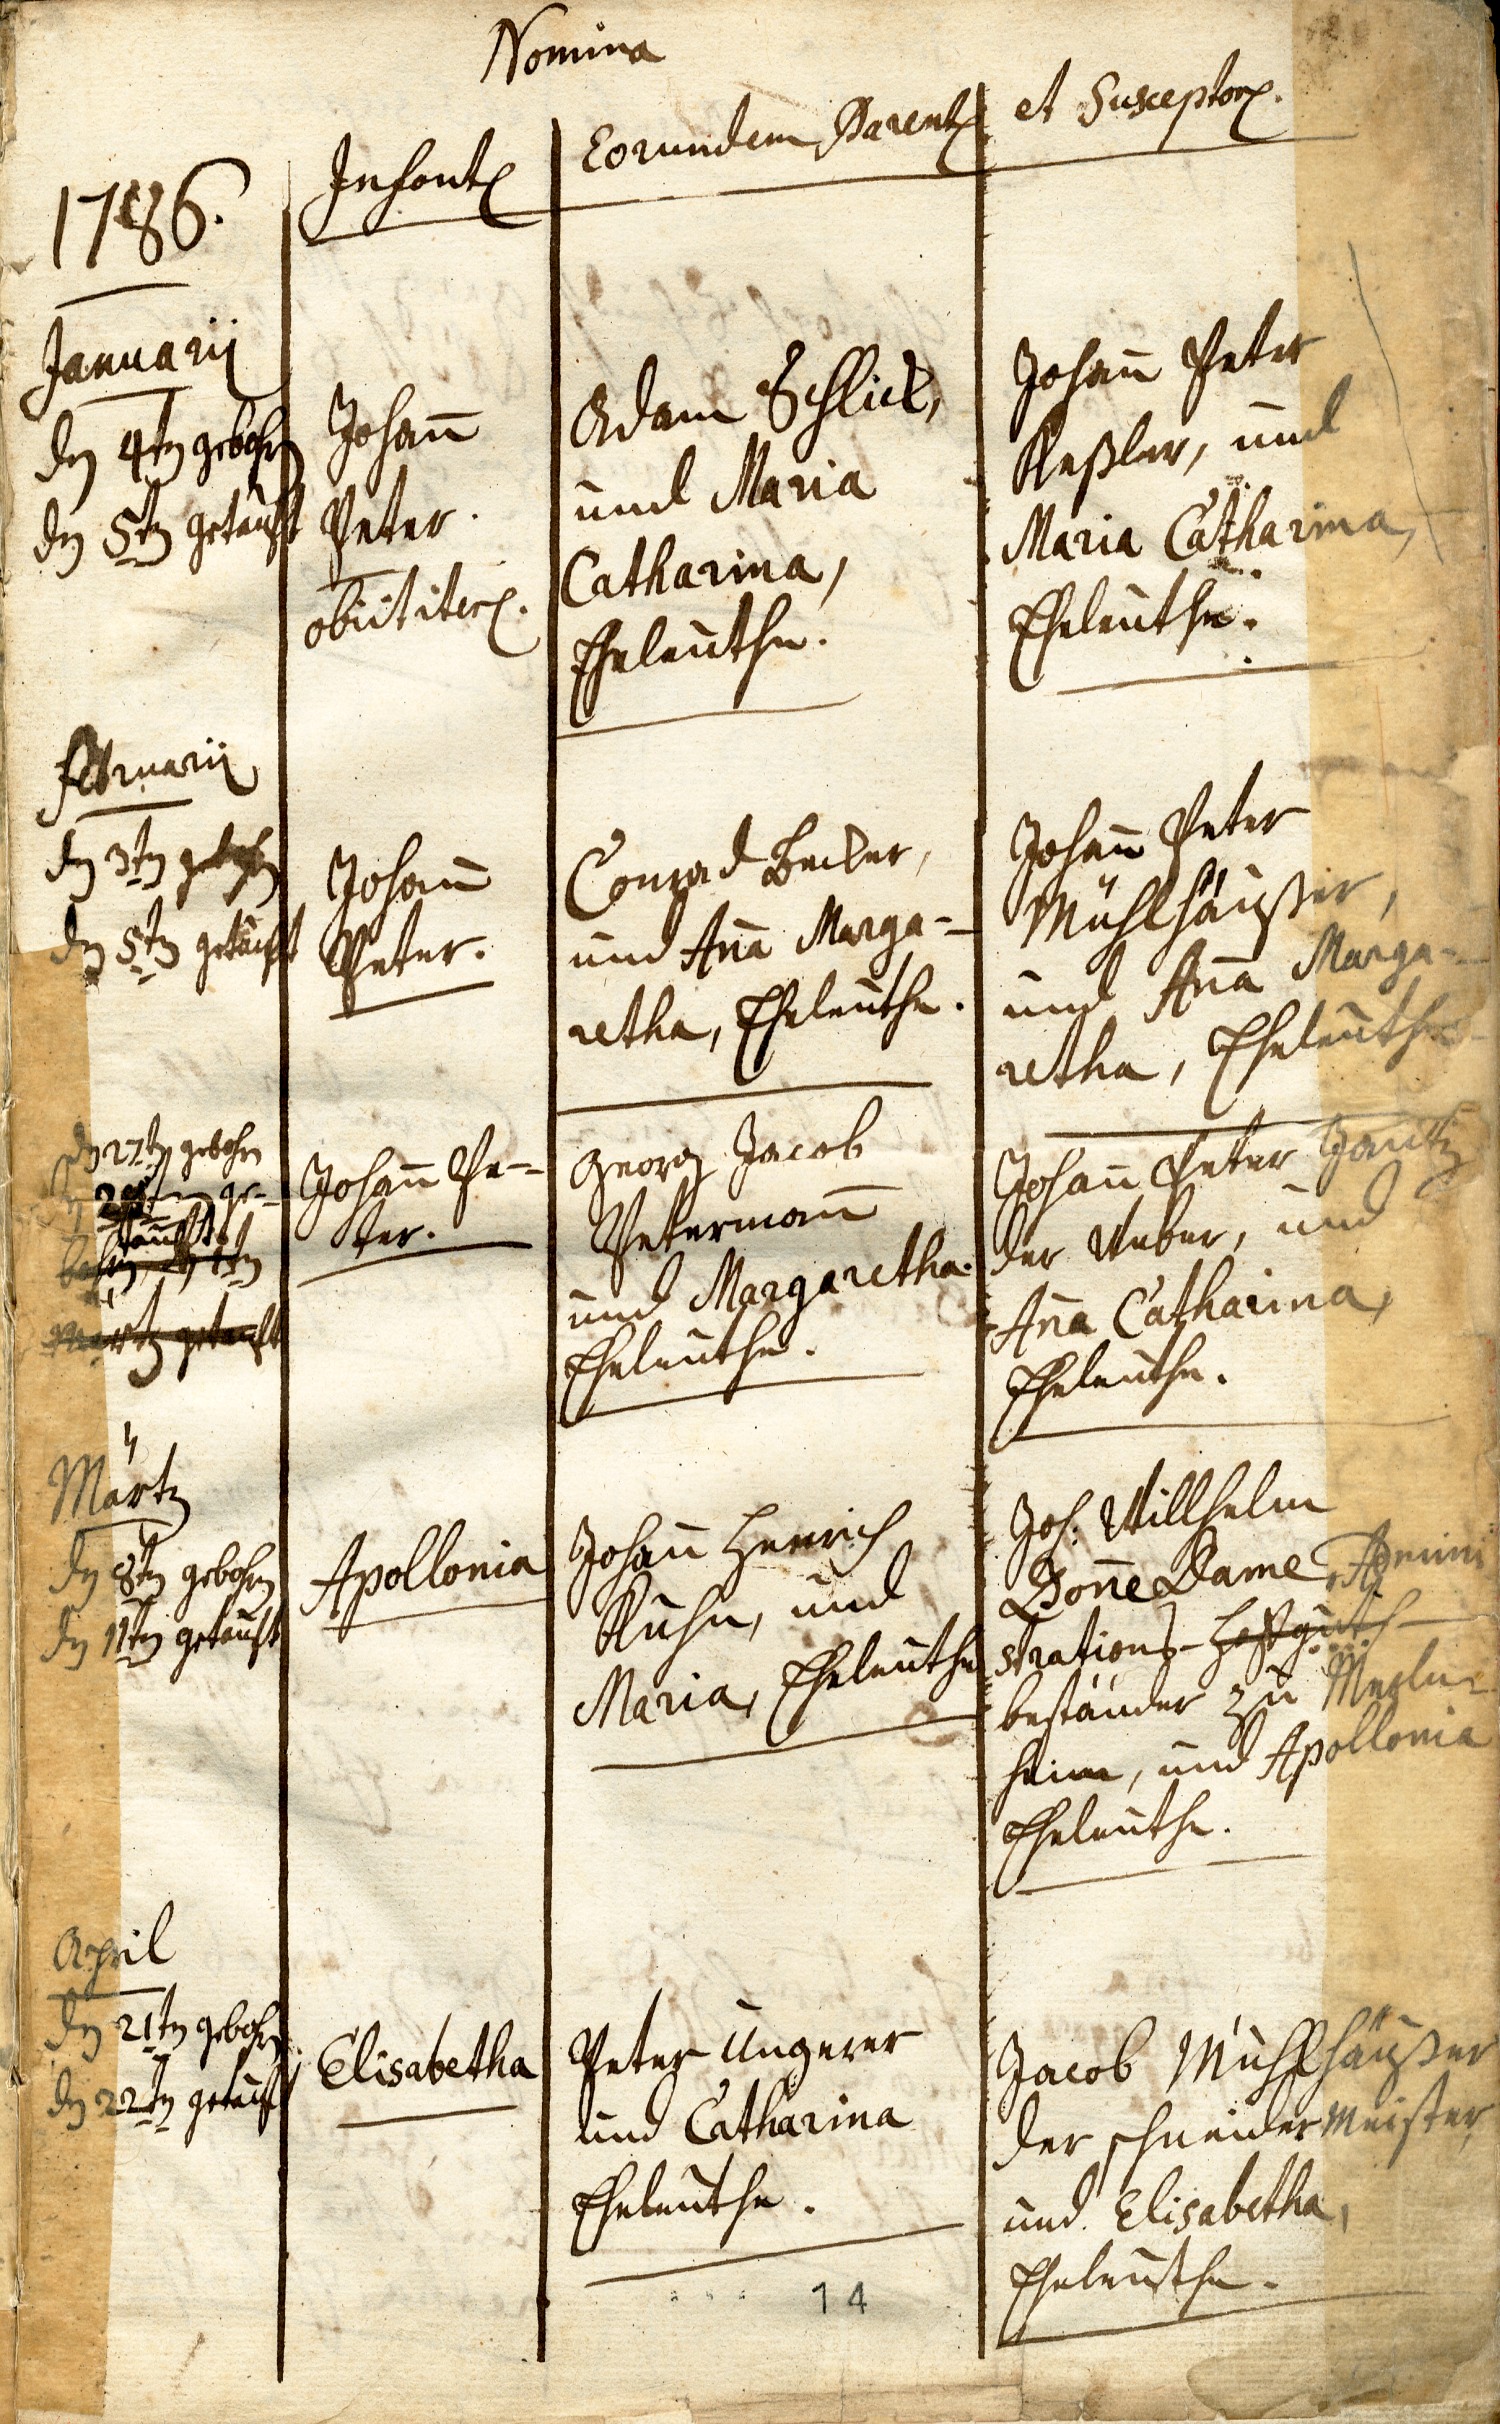 Nomina
Infant
Eorundem Parent
et Susceptor.
1786.
Januarii
dn 4tn gebohrn
dn 5tn getaufft
Johann
Peter.
obiit iter.
Adam Schlick,
und Maria
Catharina,
Eheleuthe.
Johann Peter
Keßler, und
Maria Catharina,
Eheleuthe.
Februarii
dn 3tn gebohrn
dn 5tn getaufft
Johann
Peter.
Conrad Becker,
und Anna Marga-
retha, Eheleuthe.
Johann Peter
Mühlhäußer,
und Anna Marga-
retha, Eheleuthe
dn 27tn gebohrn
ge-
taufft
Mertz getaufft
Johann Pe-
ter.
Georg Jacob
Petermann
und Margaretha
Eheleuthe.
Johann Peter
der Weber, und
Anna Catharina,
Eheleuthe.
Märtz
dn 8tn gebohrn
dn 11tn getaufft
Apollonia
Johann Henrich
Kuhn, und
Maria, Eheleuthe
Joh: Willhelm
Bonne Dame, Admini
strations-
beständer zu
heim, und Apollonia
Eheleuthe.
April
dn 21tn gebohrn
dn 22tn getaufft
Elisabetha
Peter Ungerer
und Catharina
Eheleuthe.
Jacob Mühlhäußer
der schneider Meister,
und Elisabetha,
Eheleuthe.
14